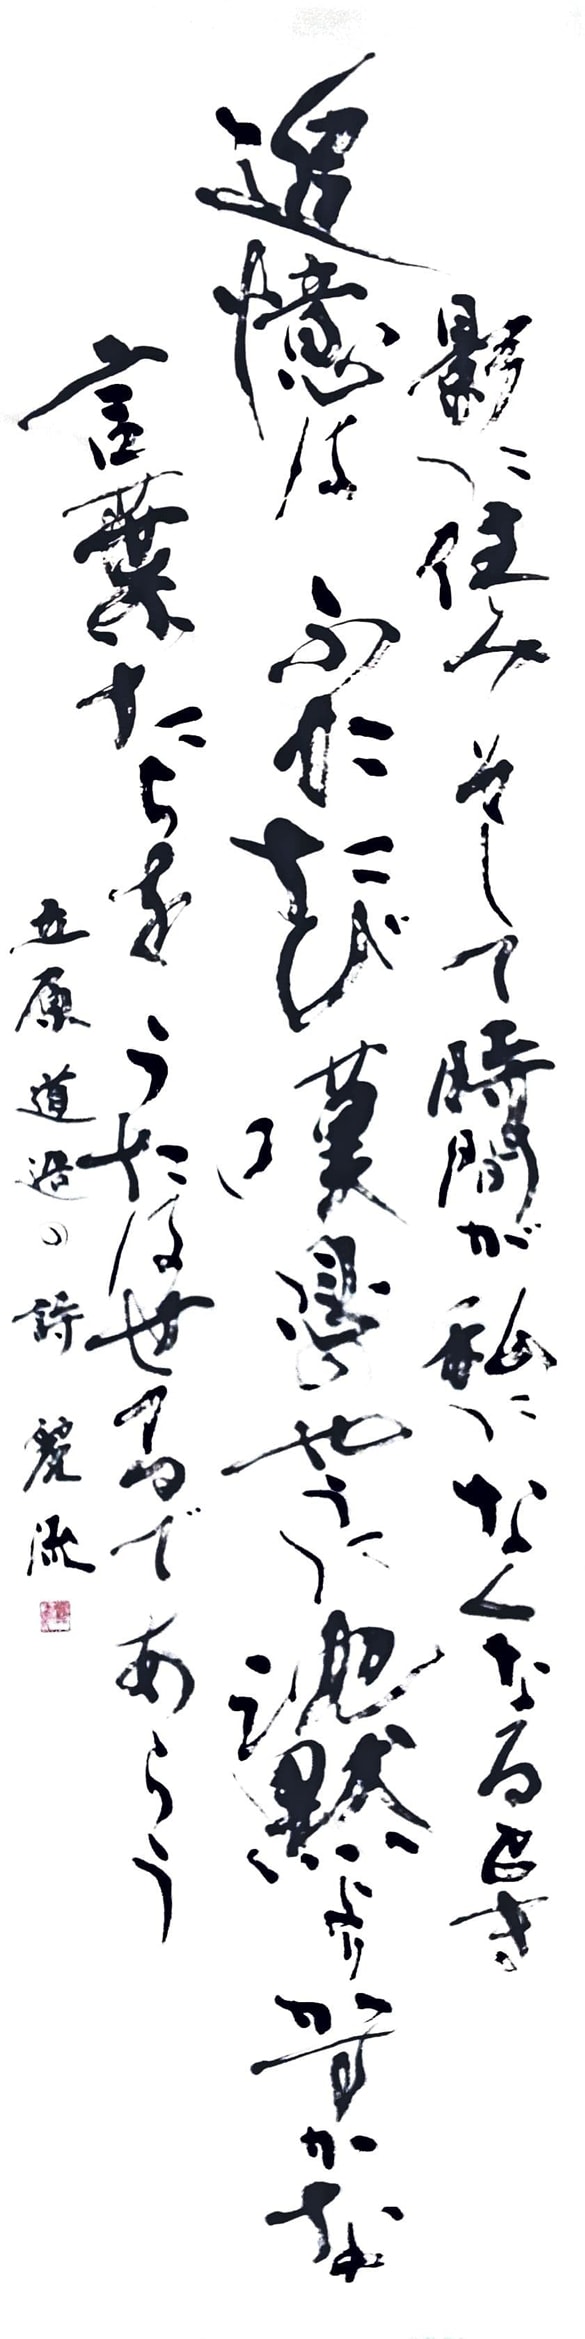 影に住み そして時間が私になくなるとき
追憶は ふたたび嘆息のやうに沈黙よりかすかな
言葉たちをうたはせるであらう
立原道造の詩 麗流